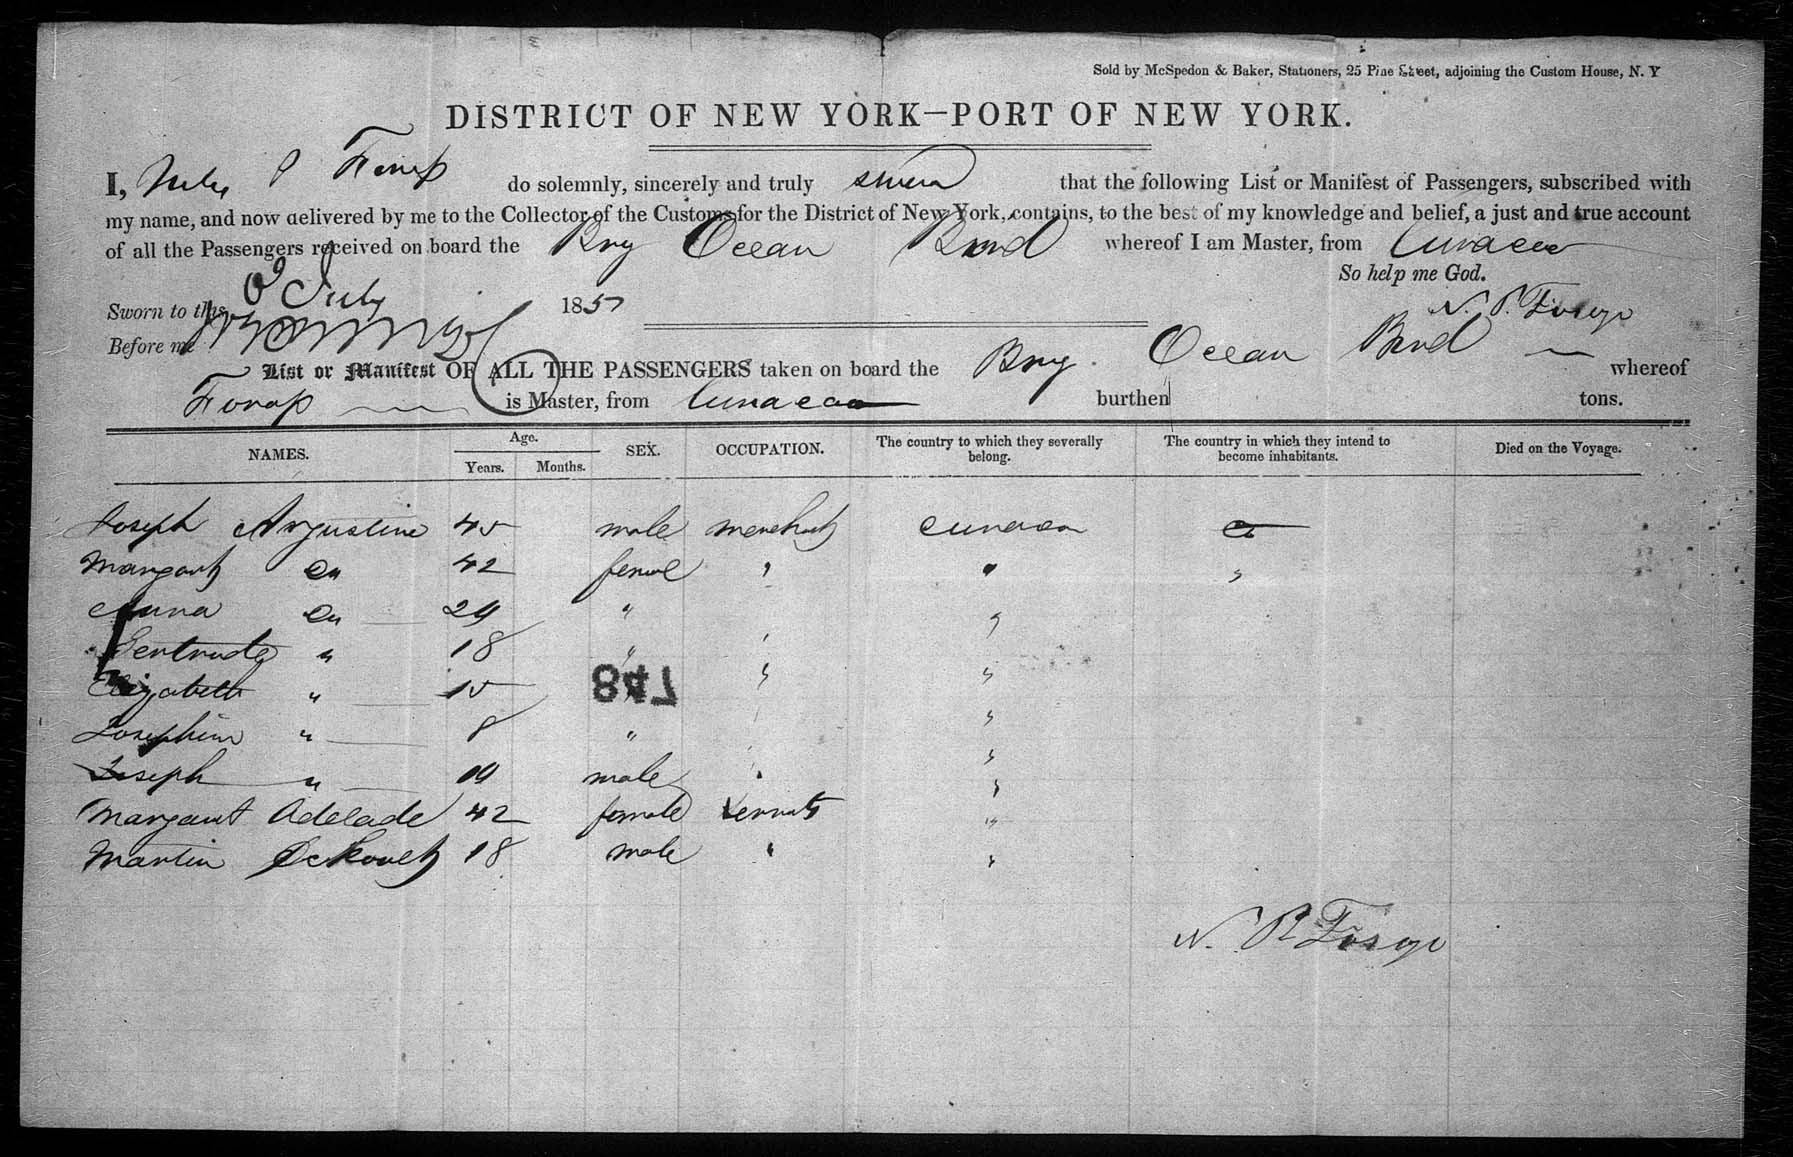 Sold by McSpedon & Baker, Stationers, 25 Pine Street, adjoining the Custom House, N. Y
DISTRICT OF NEW YORK—PORT OF NEW YORK.
I, P do solemnly, sincerely and truly swear that the following List or Manifest of Passengers, subscribed with
my name, and now delivered by me to the Collector of the Customs for the District of New York, contains, to the best of my knowledge and belief, a just and true account
of all the Passengers received on board the Brig Ocean Bird whereof I am Master, from Curacao
So help me God.
Sworn to this July 185
N. P.
Before me
List or Manifest OF ALL THE PASSENGERS taken on board the Brig Ocean Bird whereof
is Master, from Curacao burthen tons.
NAMES. Age. Years. Months. SEX. OCCUPATION. The country to which they severally belong. The country in which they intend to become inhabitants. Died on the Voyage.
Joseph Augustine 45 male Curacao
42 "
Anna 29 " "
Gertrude " 18 " "
Elizabeth " 15 "
748
Josephine " 8 " "
Joseph " 19 male " "
Margaret Adelade 42 female "
Martin 18 male " "
N. P.